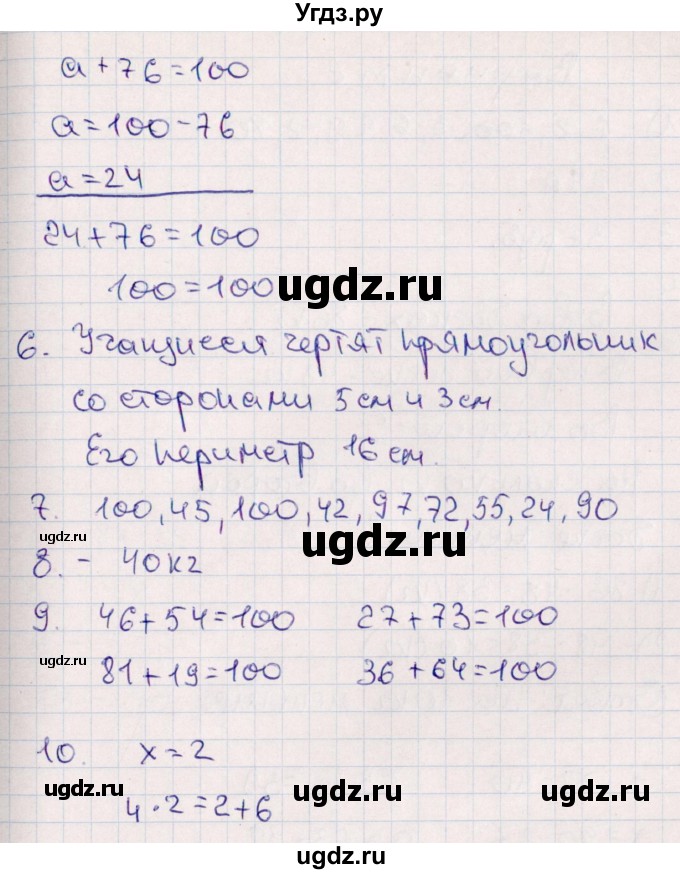 Угдз.ру
a + 76 = 100
a = 100 - 76
a = 24
24 + 76 = 100
100 = 100
ugdz.ru
6. Учащиеся чертят прямоугольник
со сторонами 5 см и 3 см.
Его периметр 16 см.
7. 100, 45, 100, 42, 97, 72, 55, 24, 90
ugdz.ru
ugdz.ru
8. - 40 кг
9. 46 + 54 = 100 27 + 73 = 100
ugdz.ru
81 + 19 = 100 36 + 64 = 100
10. x = 2
ugdz.ru
ugdz.ru
ugdz.ru
4 · 2 = 2 + 6
ugdz.ru